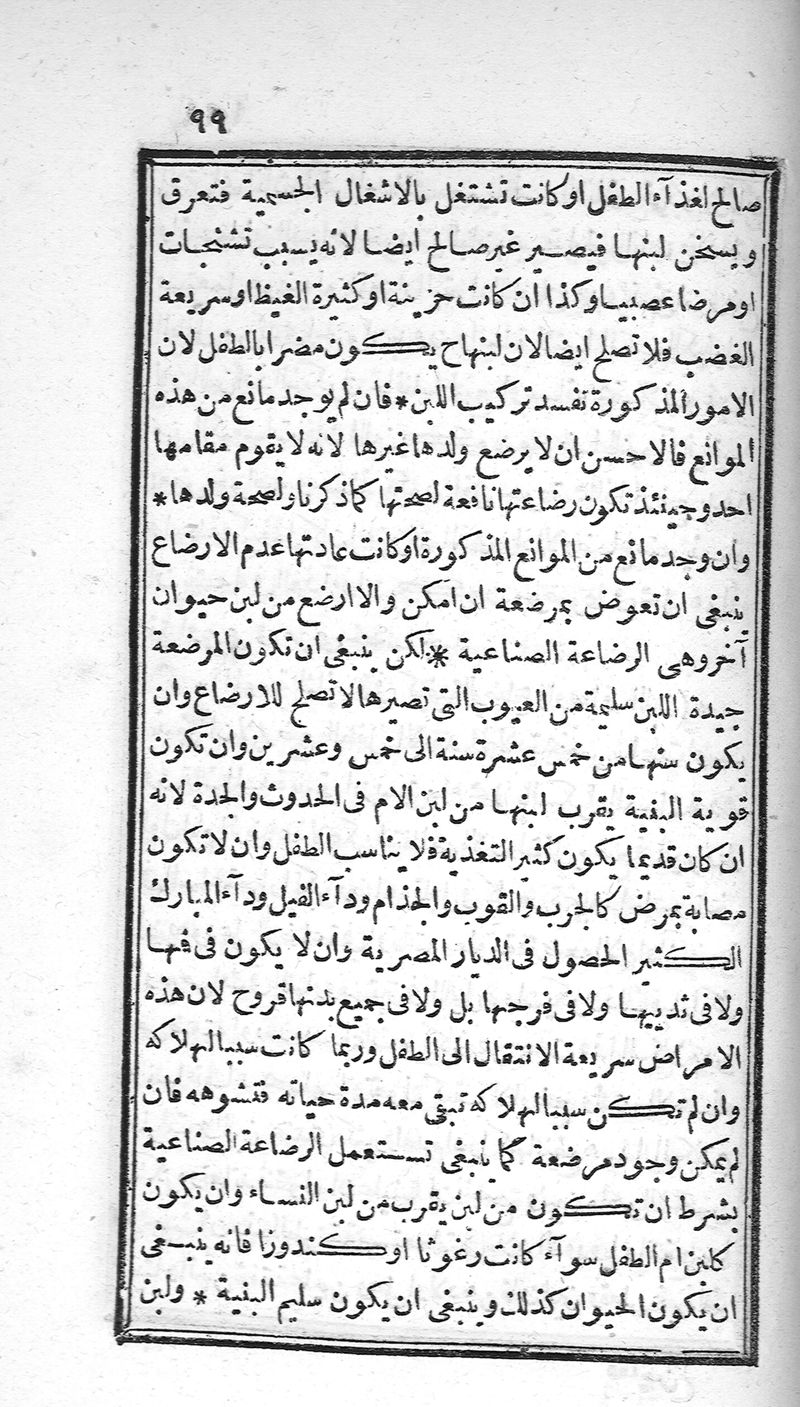 ٩٩
صالح لغذآء الطفل او كانت تشتغل بالاشغال الجسمية فتعرق
ويسخن لبنها فيصير غير صالح ايضا لانه يسبب تشنجات
او مرضا عصبيا وكذا ان كانت حزينة او كثيرة الغيظ او سريعة
الغضب فلا تصلح ايضا لان لبنها ح يكون مضرا بالطفل لان
الامور المذكورة تفسد تركيب اللبن * فان لم يوجد مانع من هذه
الموانع فالاحسن ان لا يرضع ولدها غيرها لانه لا يقوم مقامها
احد وحينئذ تكون رضاعتها نافعة لصحتها كما ذكرنا ولصحة ولدها *
وان وجد مانع من الموانع المذكورة او كانت عادتها عدم الارضاع
ينبغى ان تعوض بمرضعة ان امكن والا ارضع من لبن حيوان
آخر وهى الرضاعة الصناعية * لكن ينبغى ان تكون المرضعة
جيدة اللبن سليمة من العيوب التى تصيرها لا تصلح للارضاع وان
يكون سنها من خمس عشرة سنة الى خمس وعشرين وان تكون
قوية البنية يقرب لبنها من لبن الام فى الحدوث والجدة لانه
ان كان قديما يكون كثير التغذية فلا يناسب الطفل وان لا تكون
مصابة بمرض كالجرب والقوب والجذام ودآء الفيل ودآء المبارك
الكثير الحصول فى الديار المصرية وان لا يكون فى فمها
ولا فى ثدييها ولا فى فرجها بل ولا فى جميع بدنها قروح لان هذه
الامراض سريعة الانتقال الى الطفل وربما كانت سببا لهلاكه
وان لم تكن سببا لهلاكه تبقى معه مدة حياته فتشوهه فان
لم يمكن وجود مرضعة كما ينبغى تستعمل الرضاعة الصناعية
بشرط ان تكون من لبن يقرب من لبن النساء وان يكون
كلبن ام الطفل سوآء كانت رغوثا او كندوزا فانه ينبغى
ان يكون الحيوان كذلك وينبغى ان يكون سليم البنية * ولبن